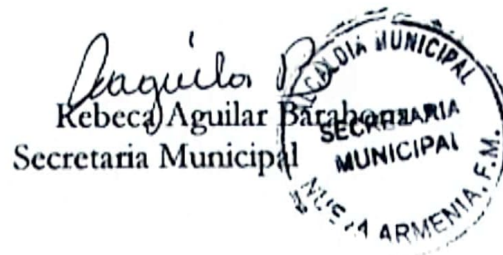 Rebeca Aguilar Barahona
Secretaria Municipal
ALCALDIA MUNICIPAL
SECRETARIA
MUNICIPAL
NUEVA ARMENIA, F.M.